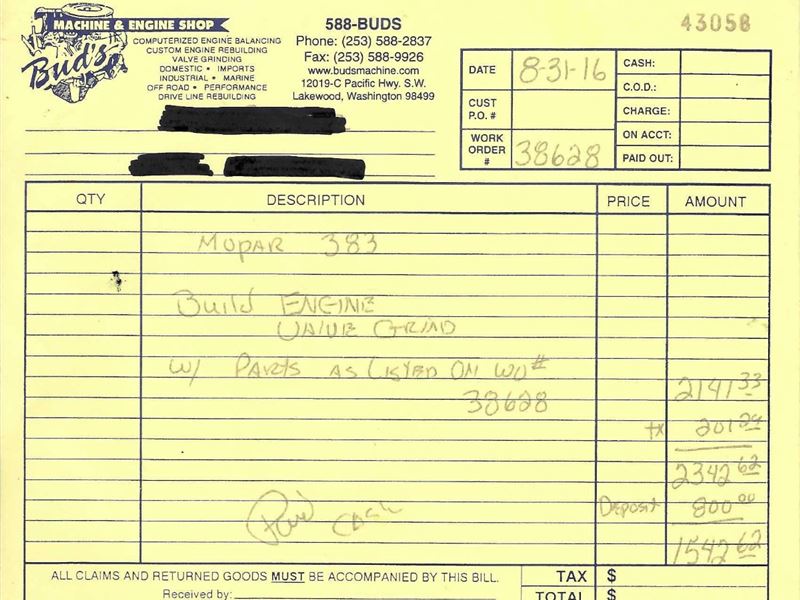 MACHINE & ENGINE SHOP
Bud's
COMPUTERIZED ENGINE BALANCING
CUSTOM ENGINE REBUILDING
VALVE GRINDING
DOMESTIC • IMPORTS
INDUSTRIAL • MARINE
OFF ROAD • PERFORMANCE
DRIVE LINE REBUILDING
588-BUDS
Phone: (253) 588-2837
Fax: (253) 588-9926
www.budsmachine.com
12019-C Pacific Hwy. S.W.
Lakewood, Washington 98499
43058
DATE 8-31-16
CUST P.O. #
WORK ORDER # 38628
CASH:
C.O.D.:
CHARGE:
ON ACCT:
PAID OUT:
QTY DESCRIPTION PRICE AMOUNT
MOPAR 383
Build ENGINE
VALVE GRIND
W/ PARTS AS LISTED ON WO#
38628
2141 33
tx 201 29
2342 62
Deposit 800 00
Paid Cash
1542 62
ALL CLAIMS AND RETURNED GOODS MUST BE ACCOMPANIED BY THIS BILL.
TAX $
Received by:
TOTAL $